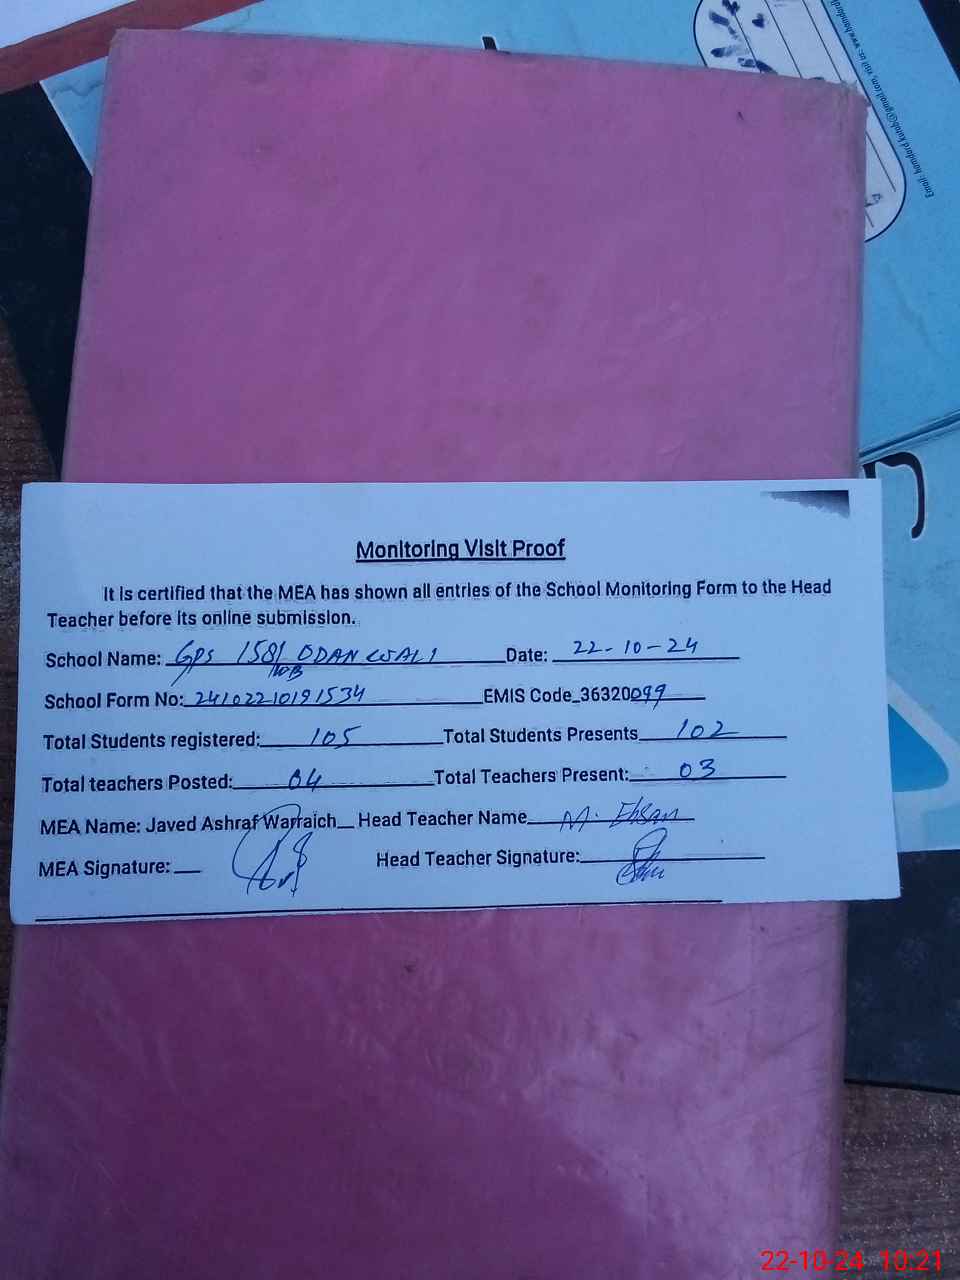 Email: hamdard.kutab@gmail.com, visit us: www.hamdardk
Monitoring Visit Proof
It is certified that the MEA has shown all entries of the School Monitoring Form to the Head
Teacher before its online submission.
School Name: GPS 158/ ODANWALI Date: 22-10-24
WB
School Form No: 24102210191534 EMIS Code_36320099
Total Students registered: 105 Total Students Presents 102
Total teachers Posted: 04 Total Teachers Present: 03
MEA Name: Javed Ashraf Warraich Head Teacher Name M. Ehsan
MEA Signature:
Head Teacher Signature:
22-10-24 10:21